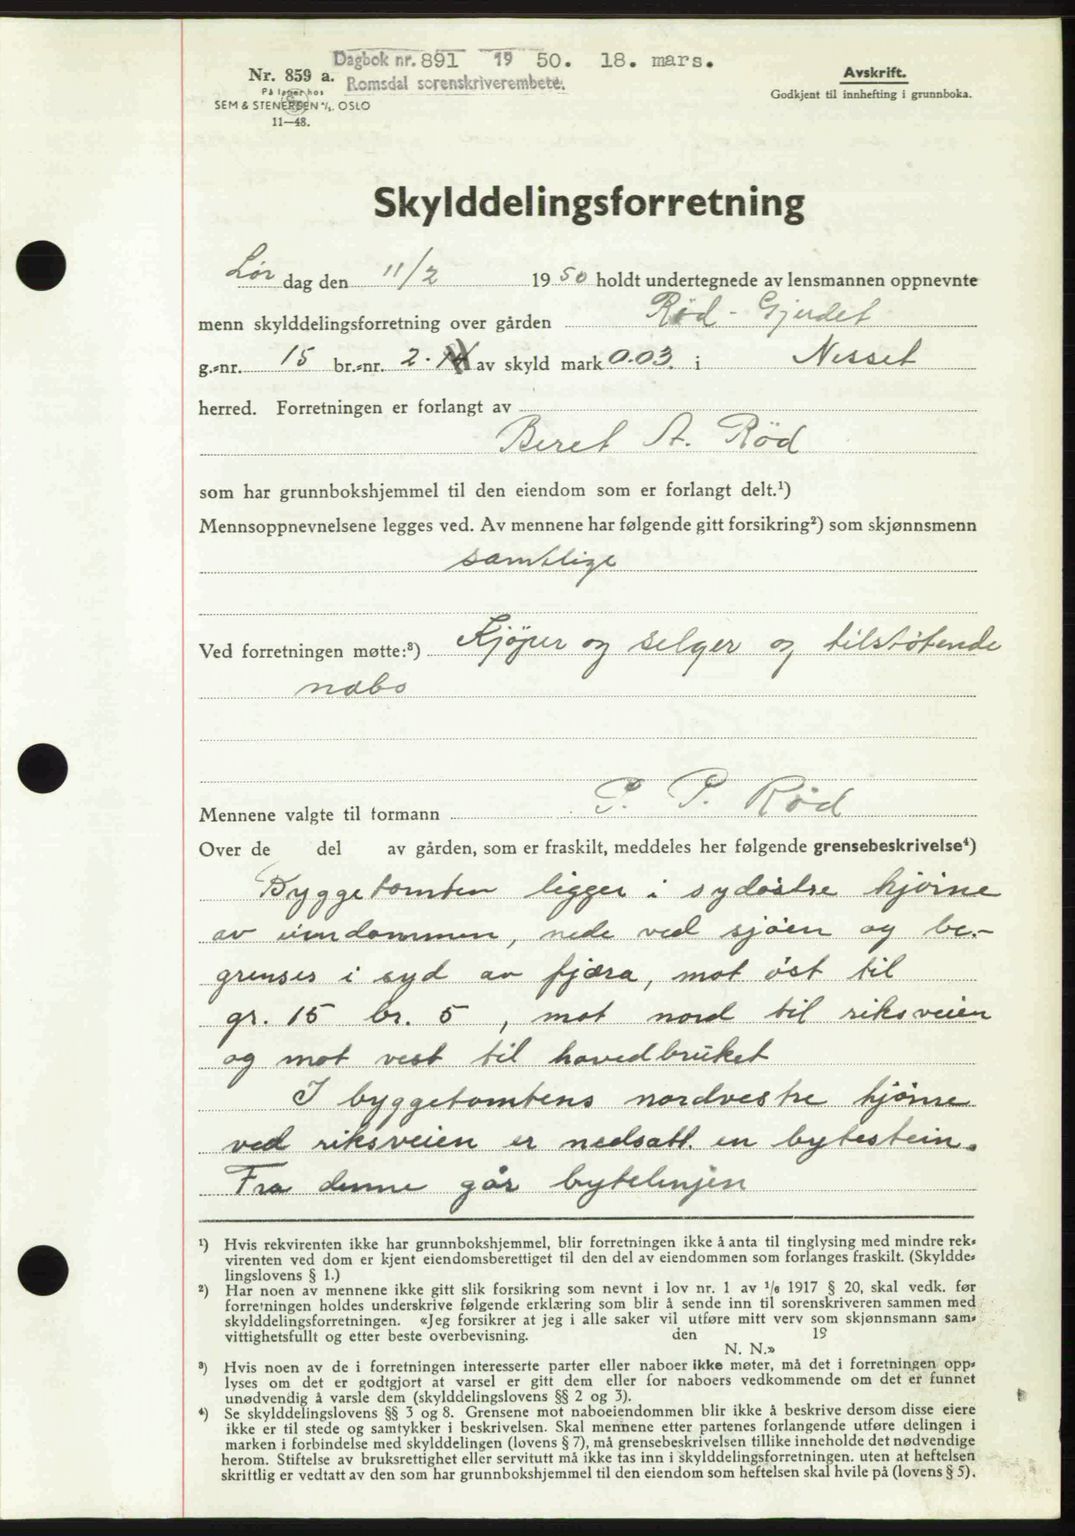 Dagbok nr. 891 19 50. 18. mars.
Romsdal sorenskriverembete.
Nr. 859 a.
På lager hos
SEM & STENERSEN A/S. OSLO
11—48.
Avskrift.
Godkjent til innhefting i grunnboka.
Skylddelingsforretning
Lør dag den 11/2 1950 holdt undertegnede av lensmannen oppnevnte
menn skylddelingsforretning over gården Rød - Gjerdet
g.-nr. 15 br.-nr. 2. av skyld mark 0.03. i Nesset
herred. Forretningen er forlangt av
Beret A. Röd
som har grunnbokshjemmel til den eiendom som er forlangt delt.¹)
Mennsoppnevnelsene legges ved. Av mennene har følgende gitt forsikring²) som skjønnsmenn
samtlige
Ved forretningen møtte:³) Kjöper og selger og tilstøtende
nabo
Mennene valgte til formann P. P. Rød
Over de del av gården, som er fraskilt, meddeles her følgende grensebeskrivelse⁴)
Byggetomten ligger i sydöstre hjörne
av eiendommen, nede ved sjöen og be-
grenses i syd av fjæra, mot öst til
gr. 15 br. 5, mot nord til riksveien
og mot vest til hovedbruket
I byggetomtens nordvestre hjörne
ved riksveien er nedsatt en bytestein.
Fra denne går bytelinjen
¹) Hvis rekvirenten ikke har grunnbokshjemmel, blir forretningen ikke å anta til tinglysing med mindre rek-
virenten ved dom er kjent eiendomsberettiget til den del av eiendommen som forlanges fraskilt. (Skyldde-
lingslovens § 1.)
²) Har noen av mennene ikke gitt slik forsikring som nevnt i lov nr. 1 av 1/6 1917 § 20, skal vedk. før
forretningen holdes underskrive følgende erklæring som blir å sende inn til sorenskriveren sammen med
skylddelingsforretningen. «Jeg forsikrer at jeg i alle saker vil utføre mitt verv som skjønnsmann sam-
vittighetsfullt og etter beste overbevisning. den 19
N. N.»
³) Hvis noen av de i forretningen interesserte parter eller naboer ikke møter, må det i forretningen opp-
lyses om det er godtgjort at varsel er gitt dem eller for naboers vedkommende om det er funnet
unødvendig å varsle dem (skylddelingslovens §§ 2 og 3).
⁴) Se skylddelingslovens §§ 3 og 8. Grensene mot naboeiendommen blir ikke å beskrive dersom disse eiere
ikke er til stede og samtykker i beskrivelsen. Skal mennene etter partenes forlangende utføre delingen i
marken i forbindelse med skylddelingen (lovens § 7), må grensebeskrivelsen tillike inneholde det nødvendige
herom. Stiftelse av bruksrettighet eller servitutt må ikke tas inn i skylddelingsforretningen. uten at heftelsen
skriftlig er vedtatt av den som har grunnbokshjemmel til den eiendom som heftelsen skal hvile på (lovens § 5).